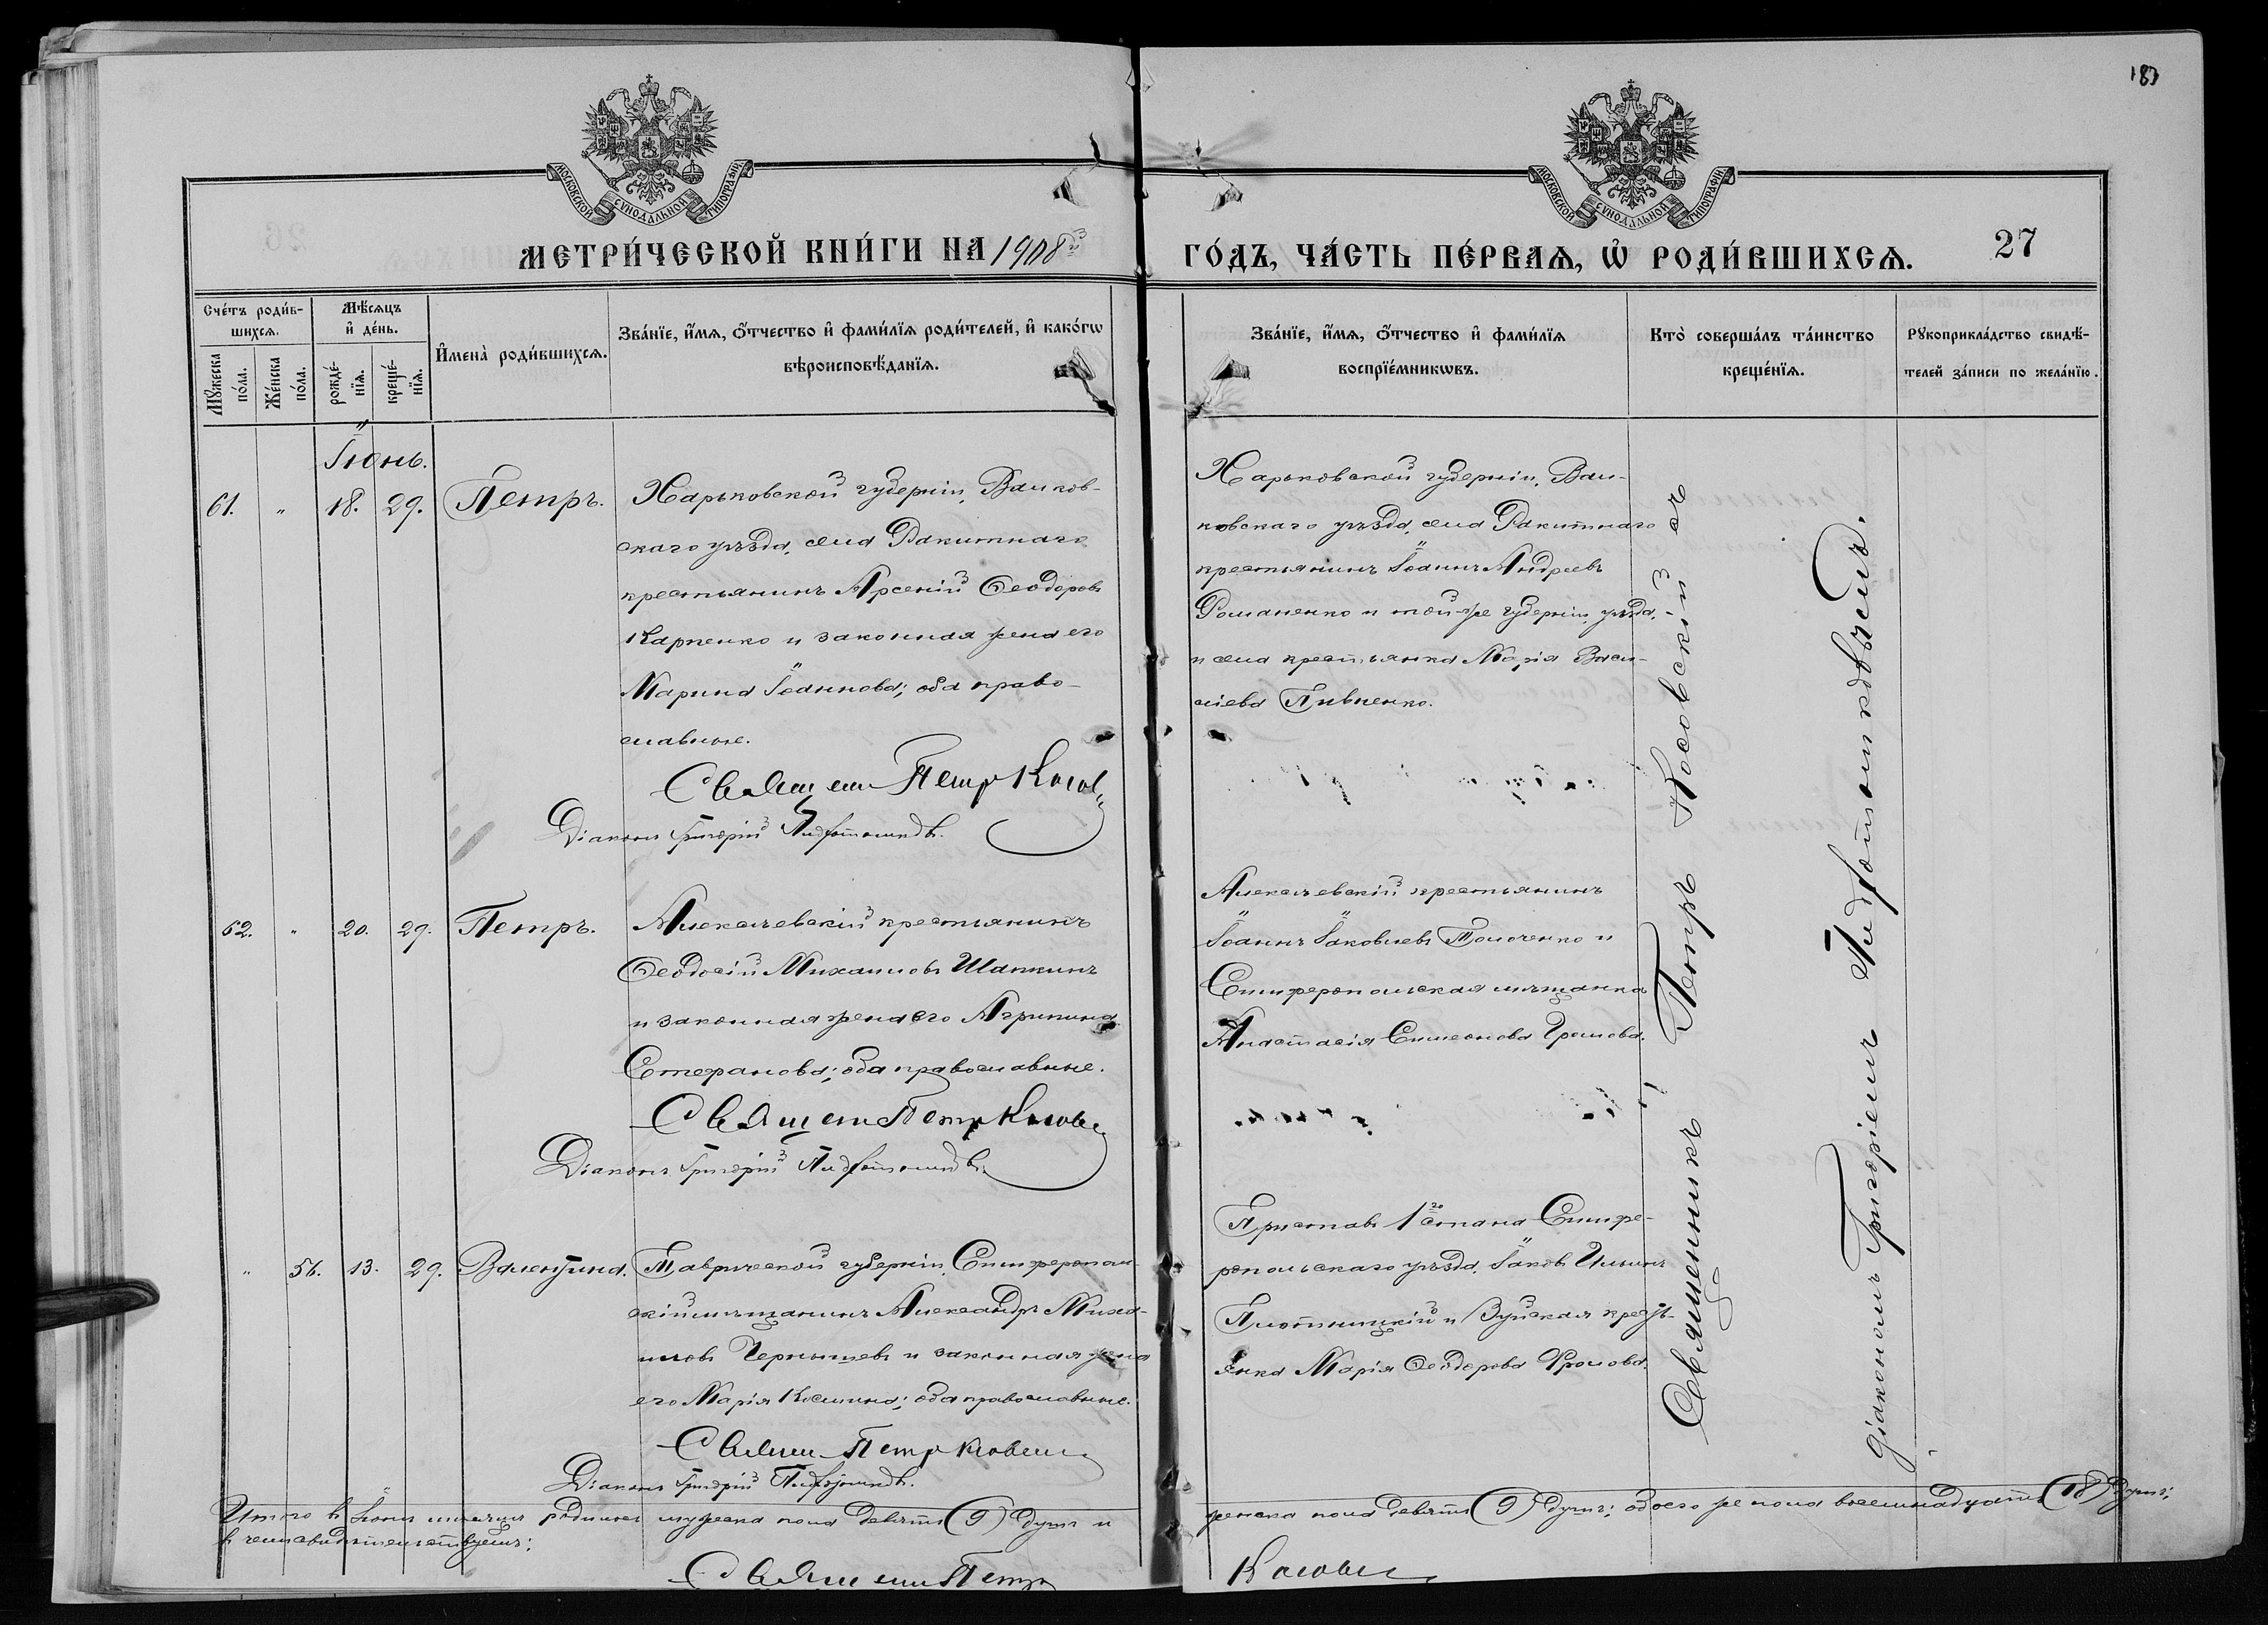 183
МОСКОВСКОЙ СѴНОДАЛЬНОЙ ТИПОГРАФІИ
МОСКОВСКОЙ СѴНОДАЛЬНОЙ ТИПОГРАФІИ
МЕТРИ́ЧЕСКОЙ КНИ́ГИ НА 1908й
ГО́ДЪ, ЧА́СТЬ ПЕ́РВАѦ, Ѡ҆ РОДИ́ВШИХСѦ.
27
Сче́тъ роди́в-
шихсѧ.
Мꙋ́жеска
по́ла.
Же́нска
по́ла.
Мѣ́сѧцъ
и҆ де́нь.
рожде́-
нїѧ.
креще́-
нїѧ.
И҆мена̀ роди́вшихсѧ.
Зва́нїе, и҆́мѧ, ѻ҆́тчество и҆ фами́лїѧ роди́телей, и҆ како́гѡ
вѣроисповѣ́данїѧ.
Зва́нїе, и҆́мѧ, ѻ҆́тчество и҆ фами́лїѧ
воспрїе́мникѡвъ.
Кто̀ соверша́лъ та́инство
креще́нїѧ.
Рꙋкоприкла́дство свидѣ́-
телей за́писи по жела́нїю.
Іюнь.
61. „ 18. 29. Петръ.
Харьковской губерніи, Валков-
скаго уѣзда, села Ракитнаго
крестьянинъ Арсеній Ѳеодоровъ
Карпенко и законная жена его
Марина Іоаннова; оба право-
славные.
Священ Петръ Косов
Діаконъ Григорій
Харьковской губерніи, Вал-
ковскаго уѣзда, села Ракитнаго
крестьянинъ Іоаннъ Андреевъ
Романенко и той-же губерніи, уѣзда,
и села крестьянка Марія Васи-
ліева Пивненко.
62. „ 20. 29. Петръ.
Алексѣевскій крестьянинъ
Ѳеодосій Михаиловъ Шапкинъ
и законная жена его Агрипина
Стефанова; оба православные.
Священ Петръ
Діаконъ Григорій
Алексѣевскій крестьянинъ
Іоаннъ Іаковлевъ Толоченко и
Симферопольская мѣщанка
Анастасія Симеонова Громова.
„ 56. 13. 29. Валентина.
Таврической губерніи, Симферополь-
скій мѣщанинъ Александръ Миха-
иловъ Чернышевъ и законная жена
его Марія Косьмина; оба православные.
Священ Петръ
Діаконъ Григорій
Приставъ 1го стана Симфе-
ропольскаго уѣзда, Іаковъ Ильинъ
Плотницкій и Зуйская крестъ-
янка Марія Ѳеодорова Фролова.
Священникъ Петръ Косовскій съ
діакономъ Григоріемъ
Итого въ Іюнѣ мѣсяцѣ родилось мужеска пола девять (9) душъ и
женска пола девять (9) душъ; обоего же пола восемнадцать (18) душъ;
въ чемъ свидѣтельствуемъ:
Священ Петръ